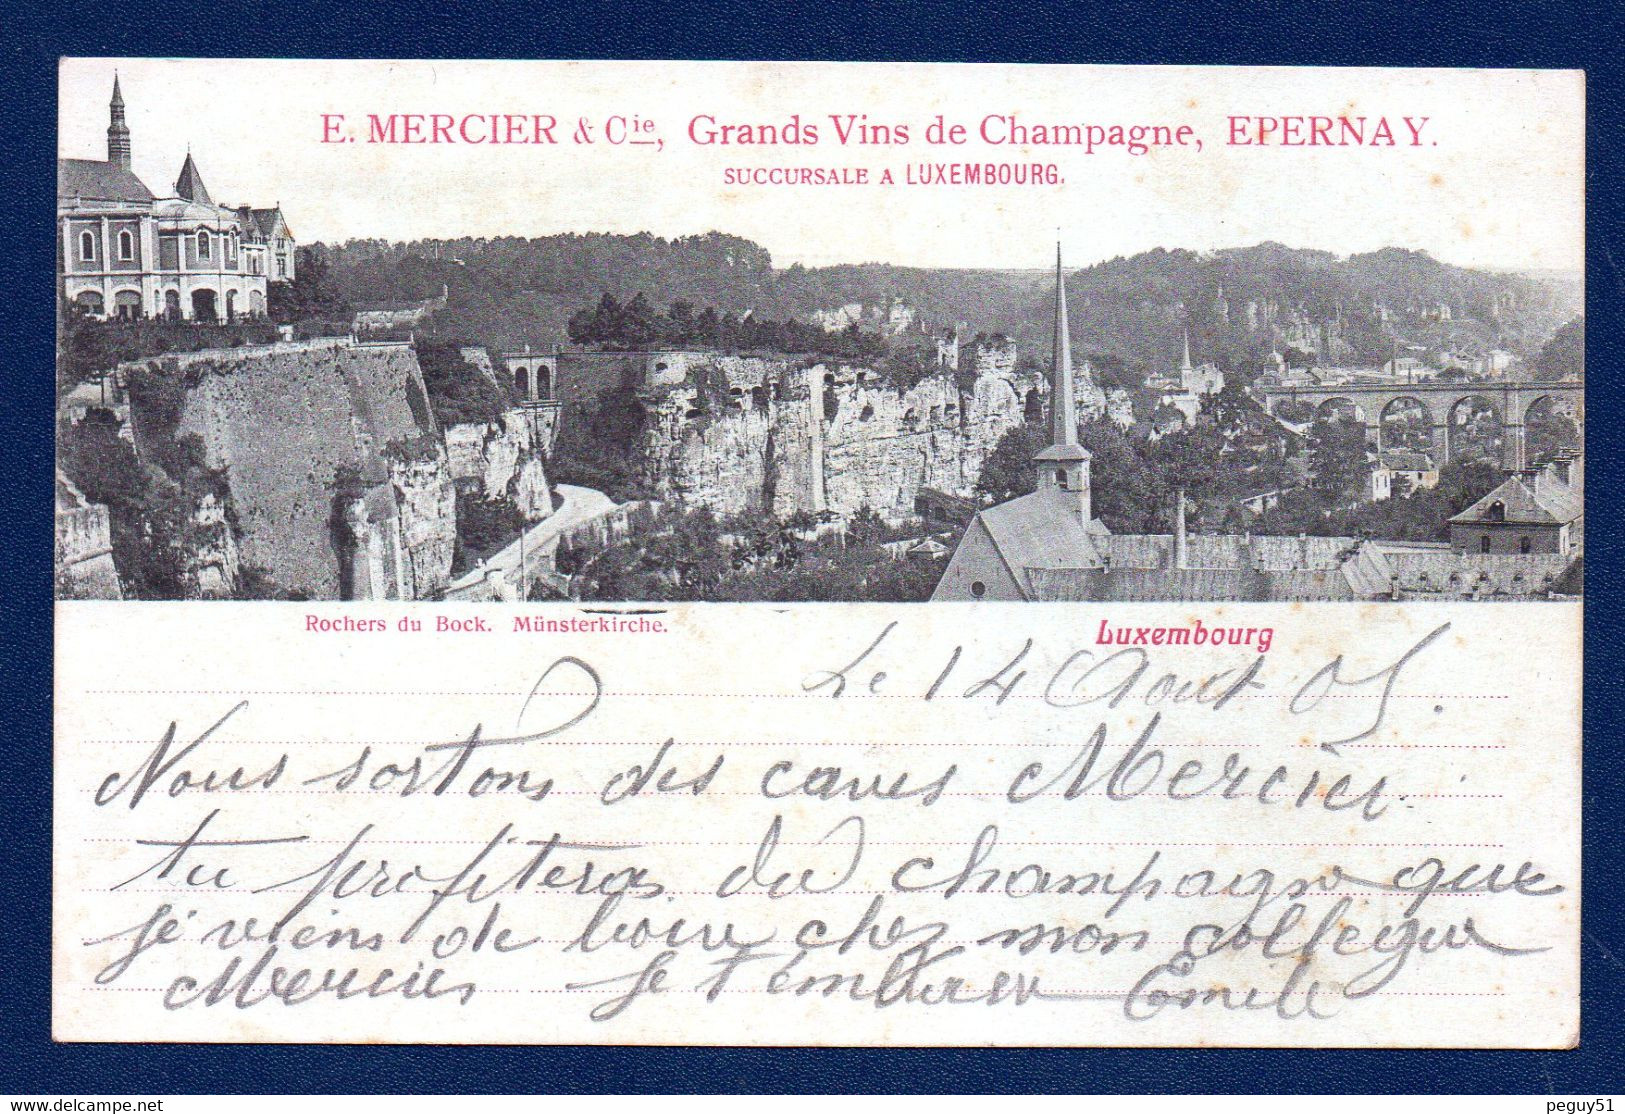 E. MERCIER & Cie, Grands Vins de Champagne, EPERNAY.
SUCCURSALE A LUXEMBOURG.
Rochers du Bock. Münsterkirche.
Luxembourg
Le 14 Aout 05.
Nous sortons des caves Mercier.
tu profiteras du champagne que
je viens de boire chez mon collegue
Mercier Je t'embrasse Emile
delcampe.net
peguy51